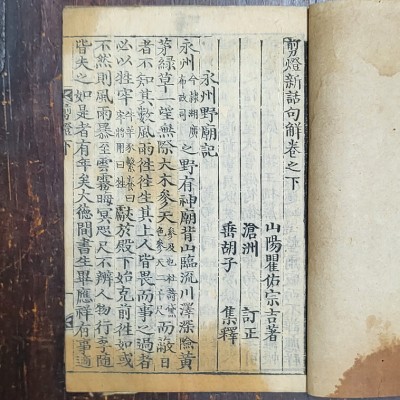 剪燈新話句解卷之下
山陽瞿佑宗吉著
滄洲 訂正
垂胡子 集釋
永州野廟記
永州今隸湖廣布政司之野有神廟背山臨流川澤深險黃
茅綠草一望無際大木參天而蔽日
者不知其數風雨往往生其上人皆畏而事之過者
必以牲牢獻於殿下始克前徃如或
不然則風雨暴至雲霧晦冥咫尺不辨人物行李隨
皆失之如是者有年矣大德間書生畢應祥有事適